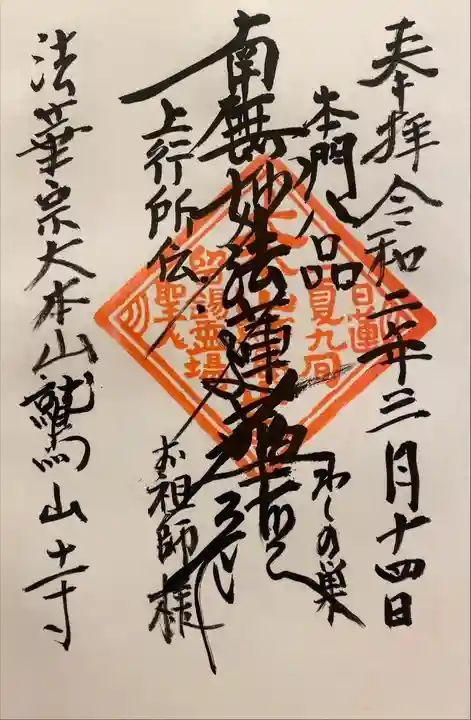 奉拝 令和二年三月十四日
本門八品
わしの巣
南無妙法蓮華経
上行所伝
お祖師様
法華宗大本山鷲山寺
日蓮
聖人
夏九旬
留錫霊場